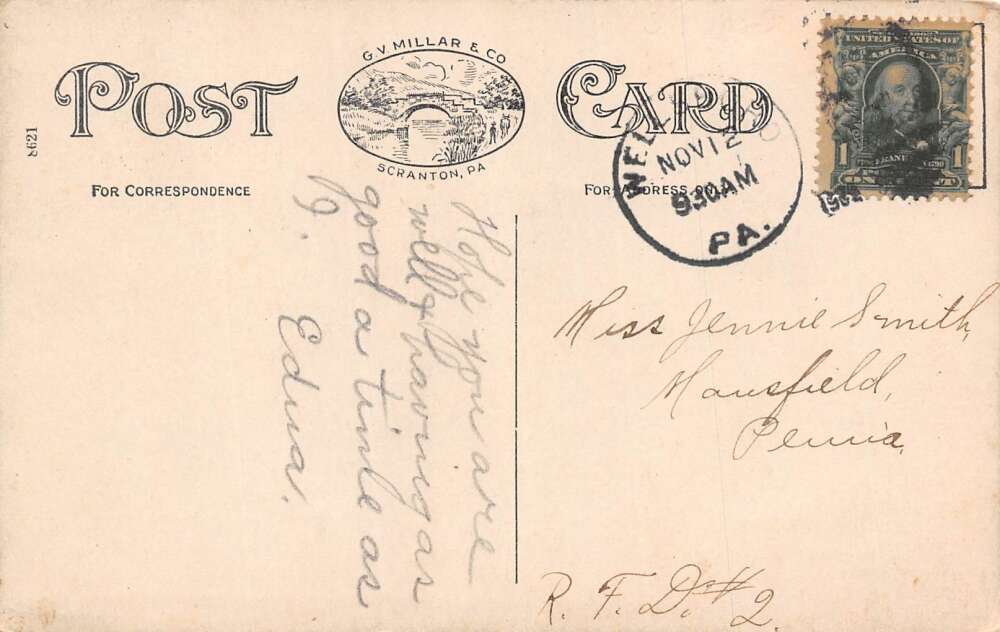 POST CARD
G.V. MILLAR & CO
SCRANTON, PA
8621
FOR CORRESPONDENCE
FOR ADDRESS ONLY
NOV 12
930AM
PA.
UNITED STATES OF
AMERICA
1 1
Hope you are
well & having as
good a time as
I.
Edna.
Miss Jennie Smith,
Mansfield,
Penn'a,
R. F. D. #2.